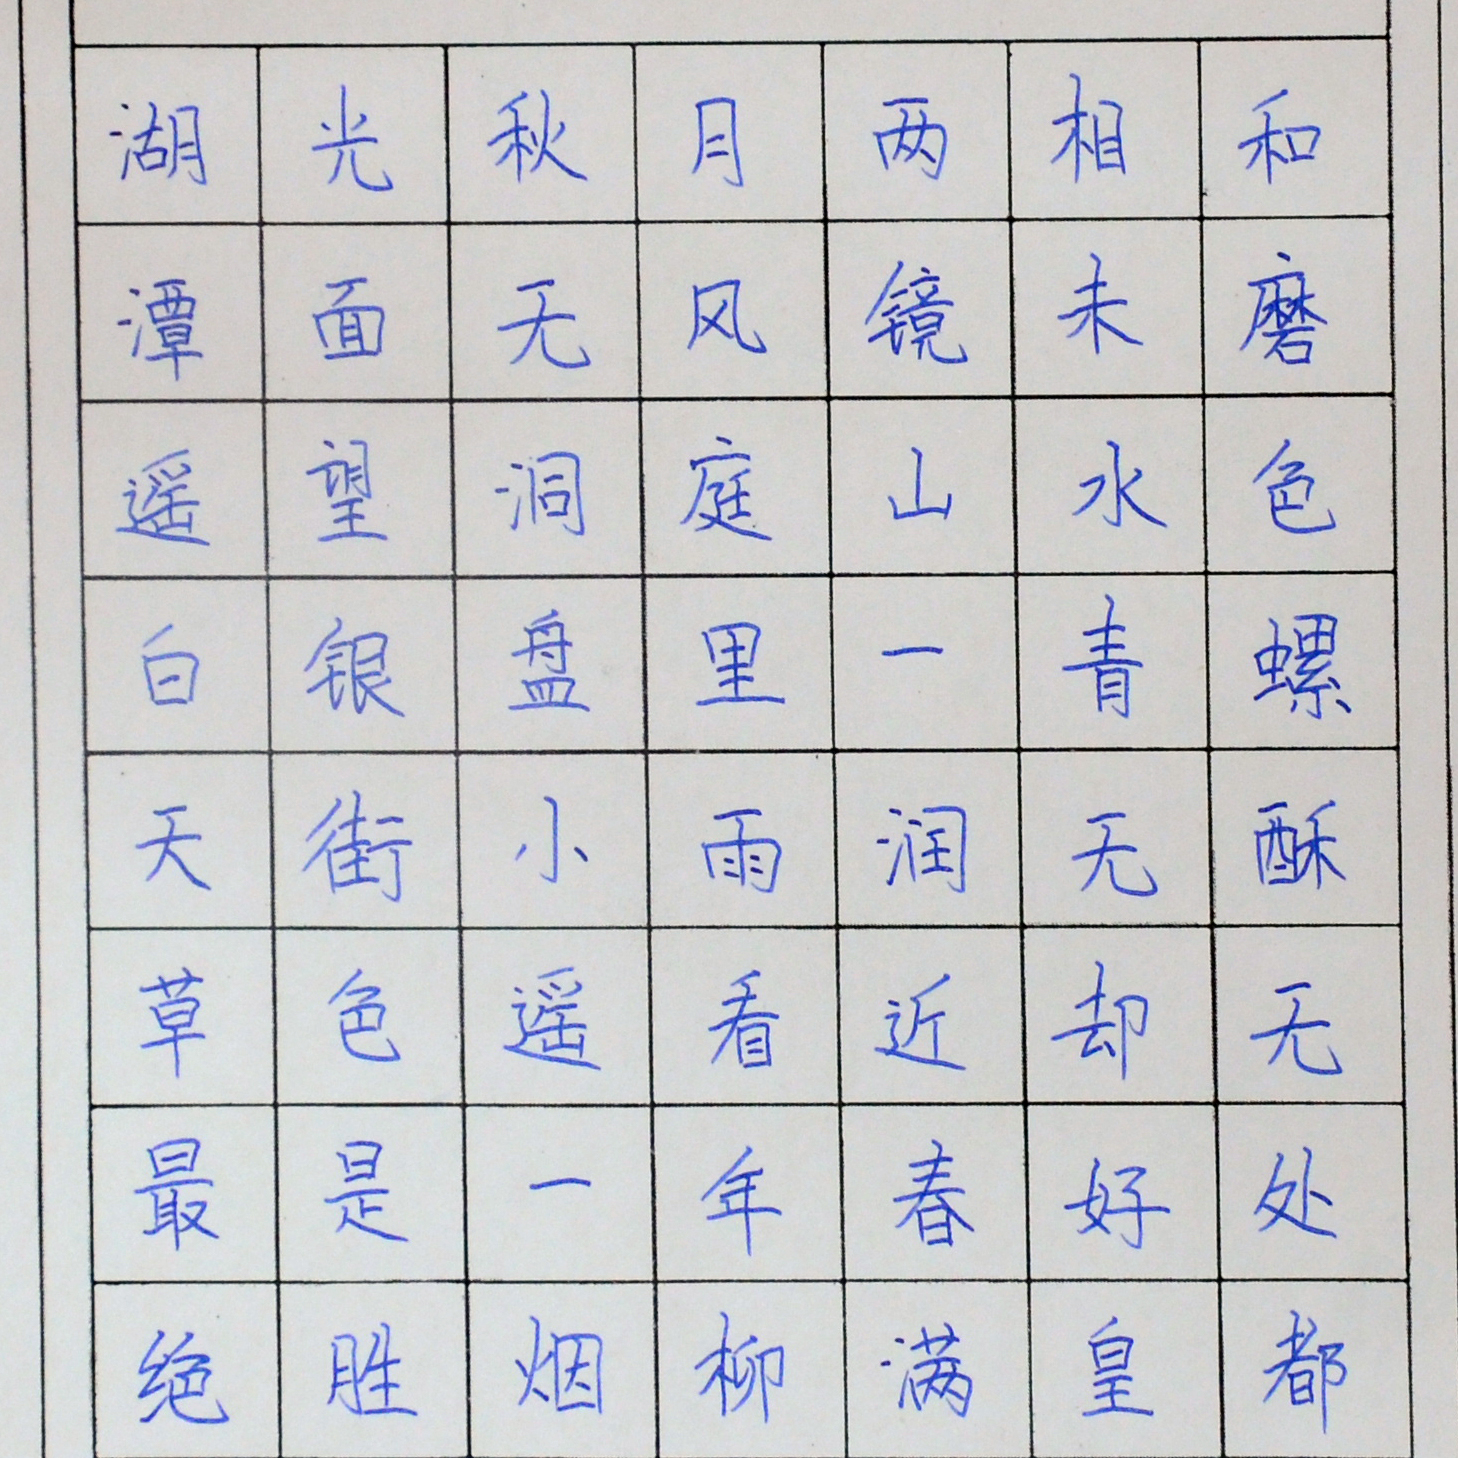 湖光秋月两相和
潭面无风镜未磨
遥望洞庭山水色
白银盘里一青螺
天街小雨润无酥
草色遥看近却无
最是一年春好处
绝胜烟柳满皇都